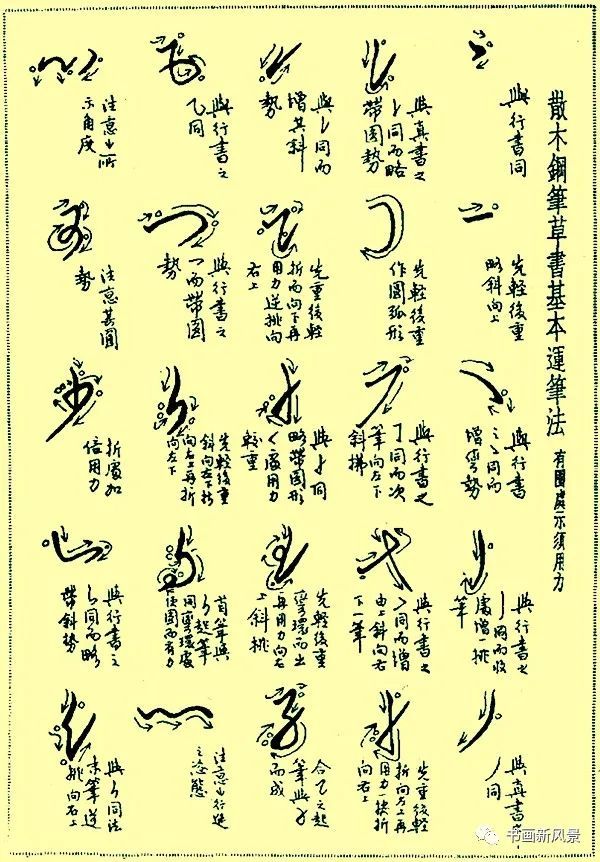 散木鋼筆草書基本運筆法 有圈處示須用力
與行書同
先輕後重
略斜向上
與行書
同而
增彎勢
與行書之
同而收
處增一挑
筆
與真書之
丿同
與真書之
同而略
帶圓勢
先輕後重
作圓弧形
與行書之
同而次
筆向左下
斜拂
與行書之
同而增
由上斜向右
下一筆
先重後輕
折向左上再
用力一挫折
向右上
同而
增其斜
勢
先重後輕
折而向下再
用力逆挑向
右上
同
略帶圓形
處用力
較重
先輕後重
彎環而出
再用力向右
上斜挑
合乙之起
筆與
而成
與行書之
乙同
與行書之
而帶圓
勢
先輕後重
斜向左下折
向右上再折
向左下
首筆與
起筆
同彎環處
使圓而有力
注意此行進
之姿態
注意此所
示角度
注意其圓
勢
折處加
倍用力
與行書之
同而略
帶斜勢
同法
末筆逆
挑向右上
书画新风景